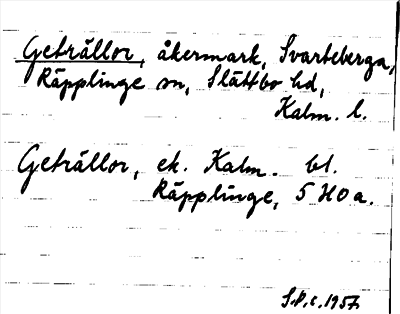 Geträllor, åkermark, Svarteberga,
Räpplinge sn, Slättbo hd,
Kalm. l.
Geträllor, ek. Kalm. bl.
Räpplinge, 5 H0a.
1957